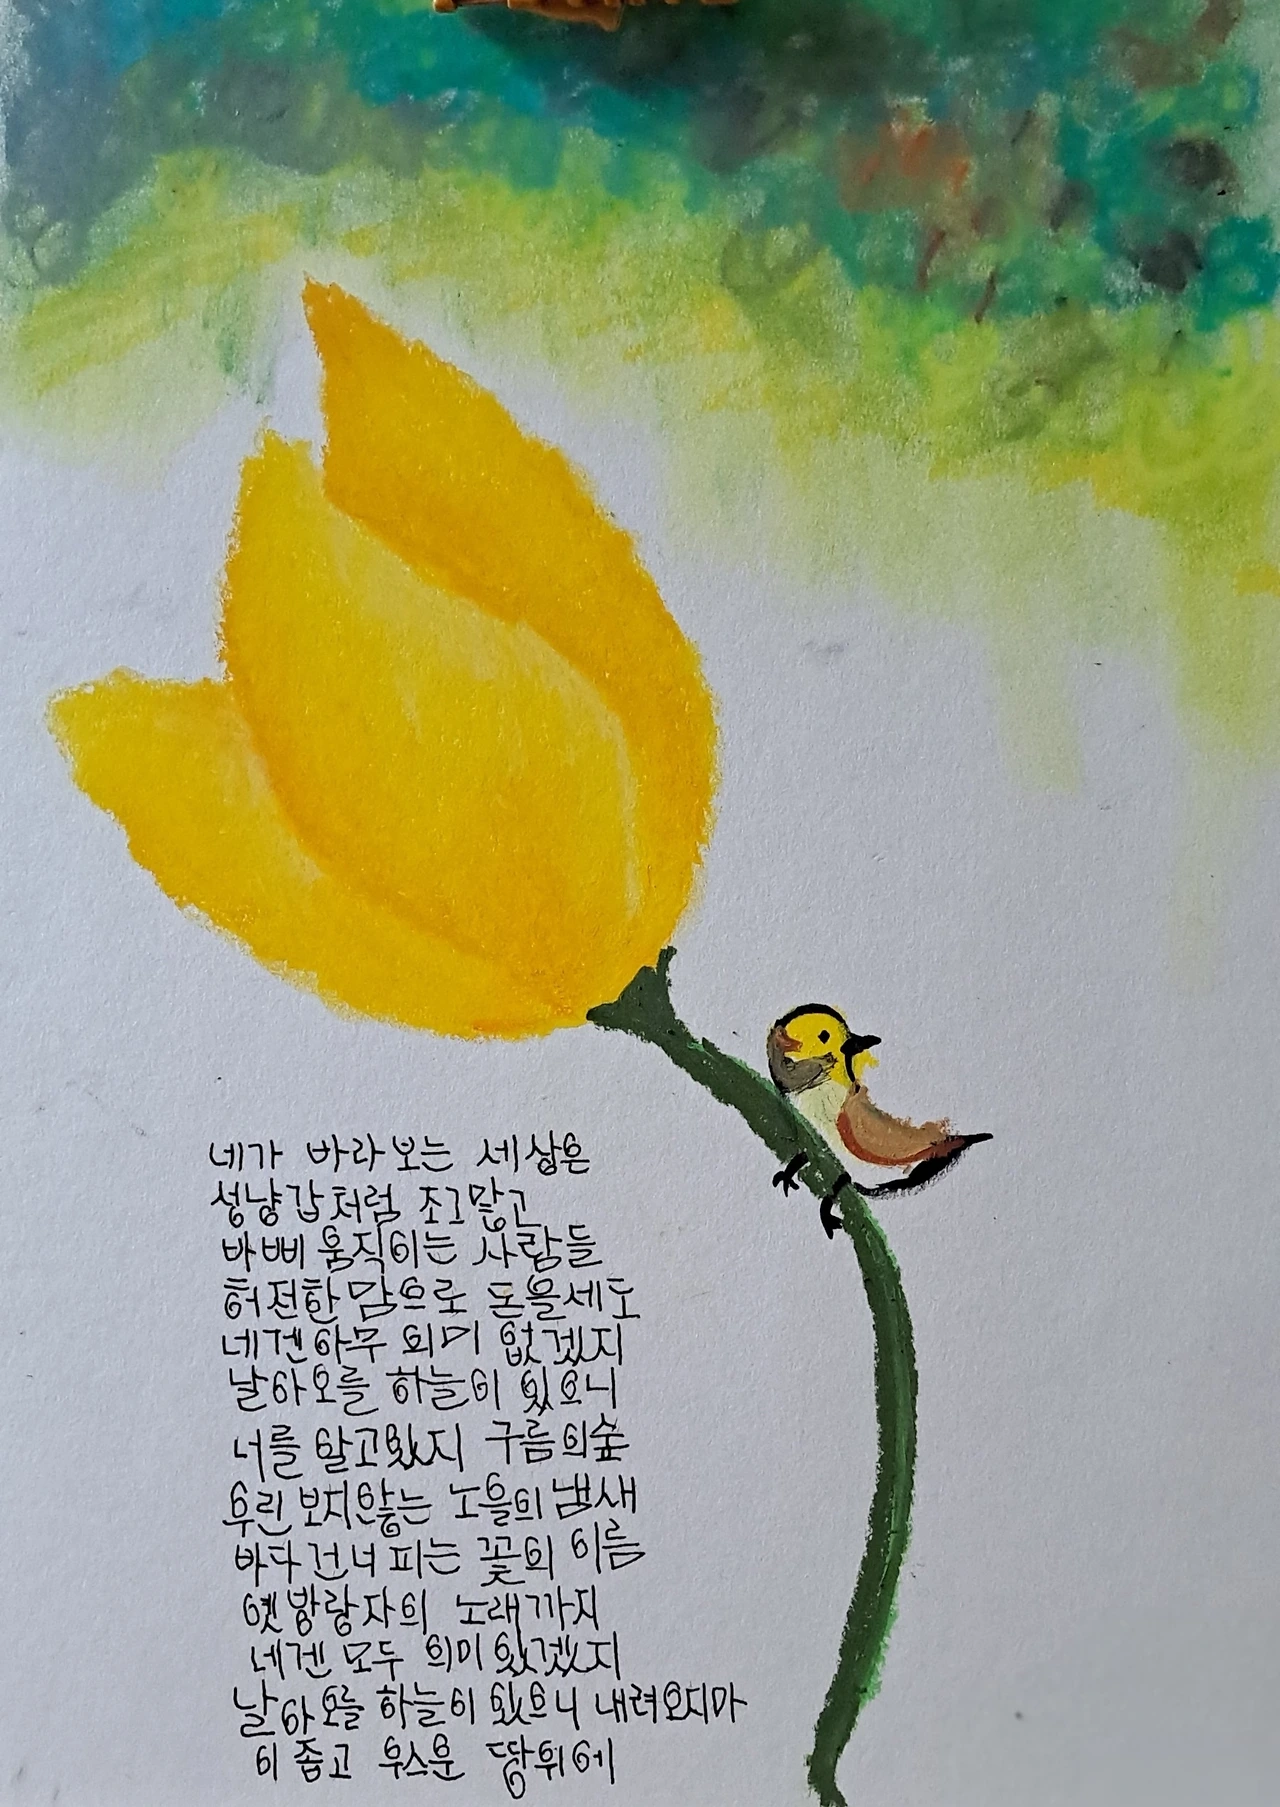 네가 바라보는 세상은
성냥갑처럼 조그맣고
바삐 움직이는 사람들
허전한 맘으로 돈을세도
네겐아무 의미 없겠지
날아오를 하늘이 있으니
너를 알고있지 구름의숲
우린 보지않는 노을의냄새
바다건너 피는 꽃의 이름
옛방랑자의 노래까지
네겐 모두 의미있겠지
날아오를 하늘이 있으니 내려오지마
이 좁고 우스운 땅위에